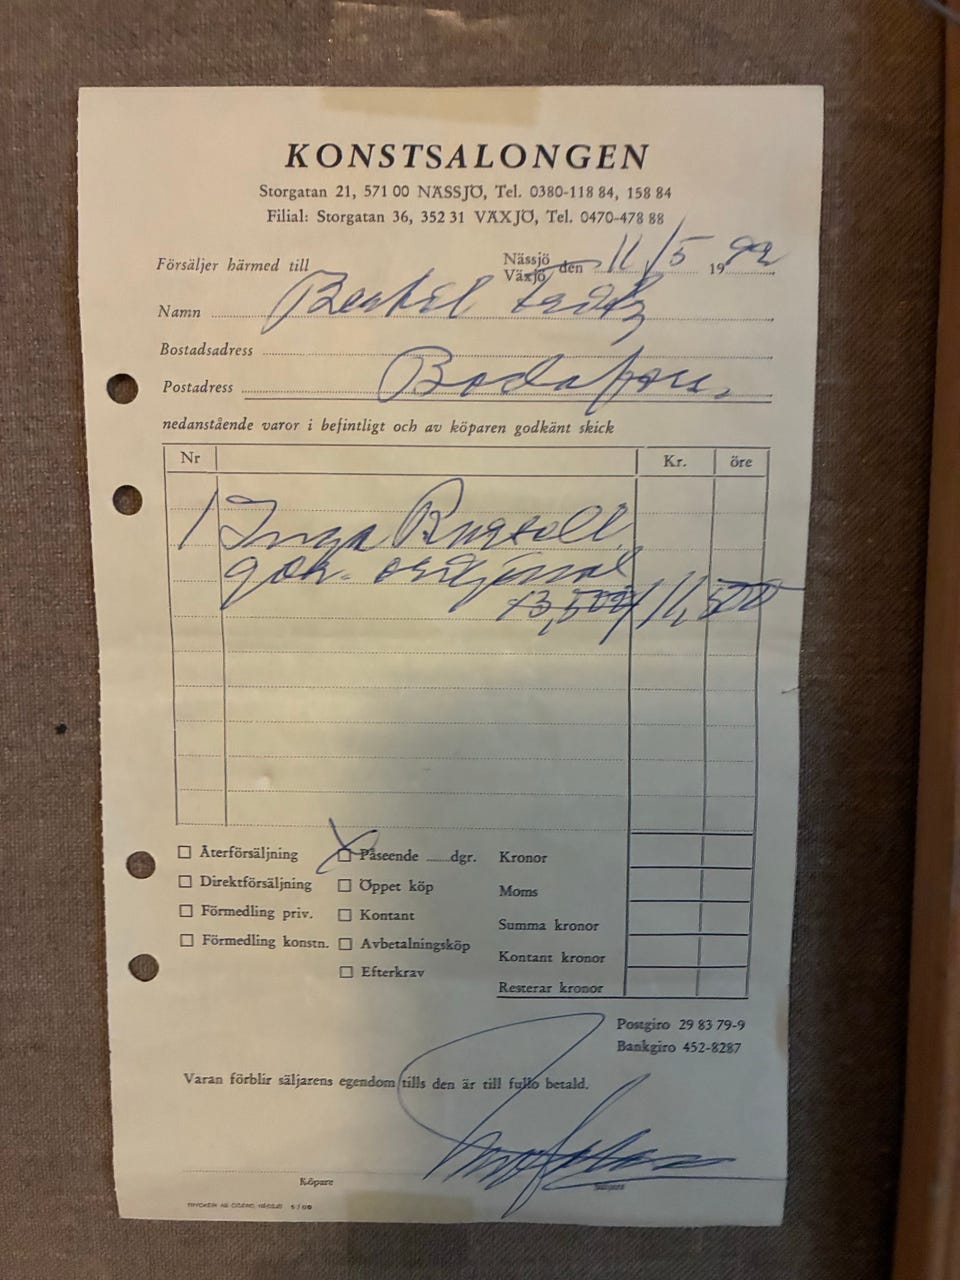 KONSTSALONGEN
Storgatan 21, 571 00 NÄSSJÖ, Tel. 0380-118 84, 158 84
Filial: Storgatan 36, 352 31 VÄXJÖ, Tel. 0470-478 88
Försäljer härmed till
Nässjö
Växjö den 11/5 1992
Namn Bertil
Bostadsadress
Postadress Bodafors.
nedanstående varor i befintligt och av köparen godkänt skick
Nr Kr. öre
1 Inga
original
13,500 11,500
Återförsäljning
Direktförsäljning
Förmedling priv.
Förmedling konstn.
Påseende ......dgr.
Öppet köp
Kontant
Avbetalningsköp
Efterkrav
Kronor
Moms
Summa kronor
Kontant kronor
Resterar kronor
Postgiro 29 83 79-9
Bankgiro 452-8287
Varan förblir säljarens egendom tills den är till fullo betald.
Köpare Säljare